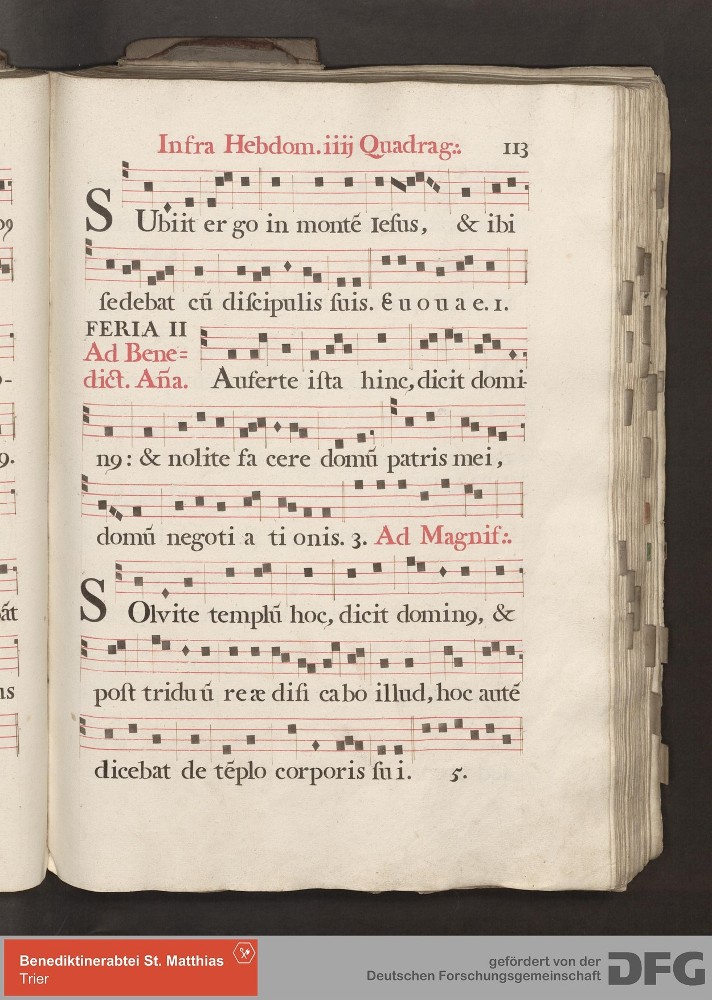 Infra Hebdom. iiij Quadrag:.
113
SUbiit er go in montē Iesus, & ibi
sedebat cū discipulis suis. E u o u a e. 1.
FERIA II
Ad Bene=
dict. Aña. Auferte ista hinc, dicit domi-
nꝯ: & nolite fa cere domū patris mei,
domū negoti a ti onis. 3. Ad Magnif:.
SOlvite templū hoc, dicit dominꝯ, &
post triduū re æ difi ca bo illud, hoc autē
dicebat de tēplo corporis su i. 5.
Benediktinerabtei St. Matthias
Trier
gefördert von der
Deutschen Forschungsgemeinschaft
DFG